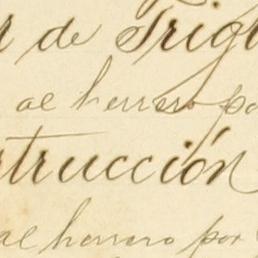 r de Trigo
al herrero po
strucción
al herrero por